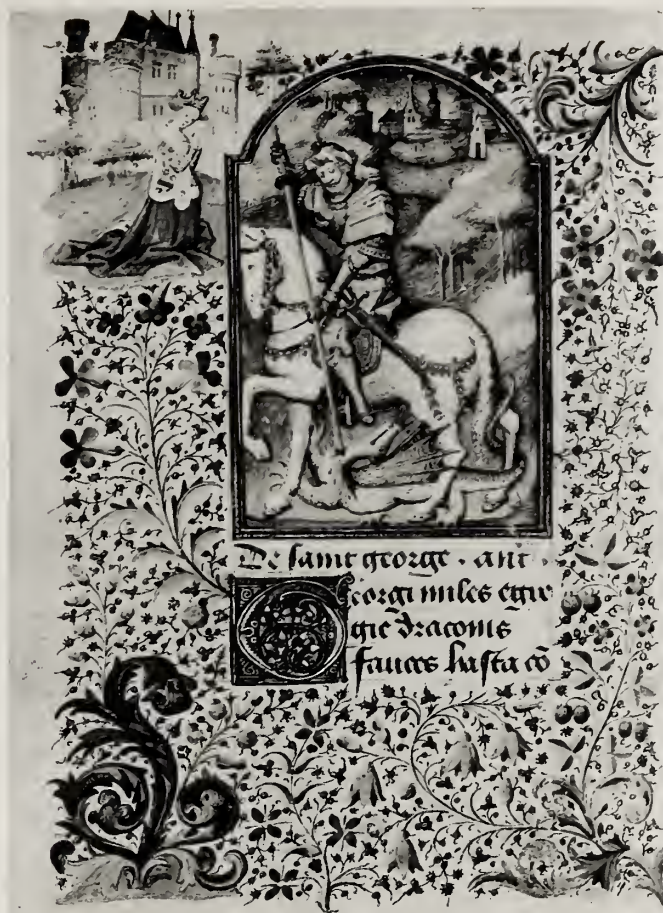 De saint george . ant .
Georgi miles egre
gie draconis
fauces hasta cō